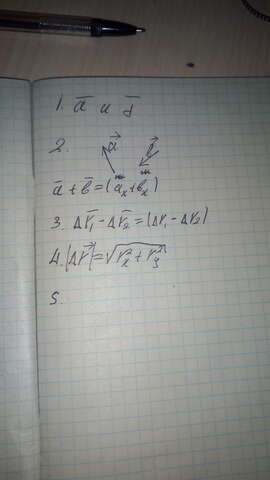 1. a̅ и d̅
2. a⃗ b⃗
a̅ + b̅ = (aₓ + bₓ)
3. Δr̅₁ - Δr̅₂ = (Δr₁ - Δr₂)
4. |Δr⃗| = √(r²ₓ + r²ᵧ)
5.